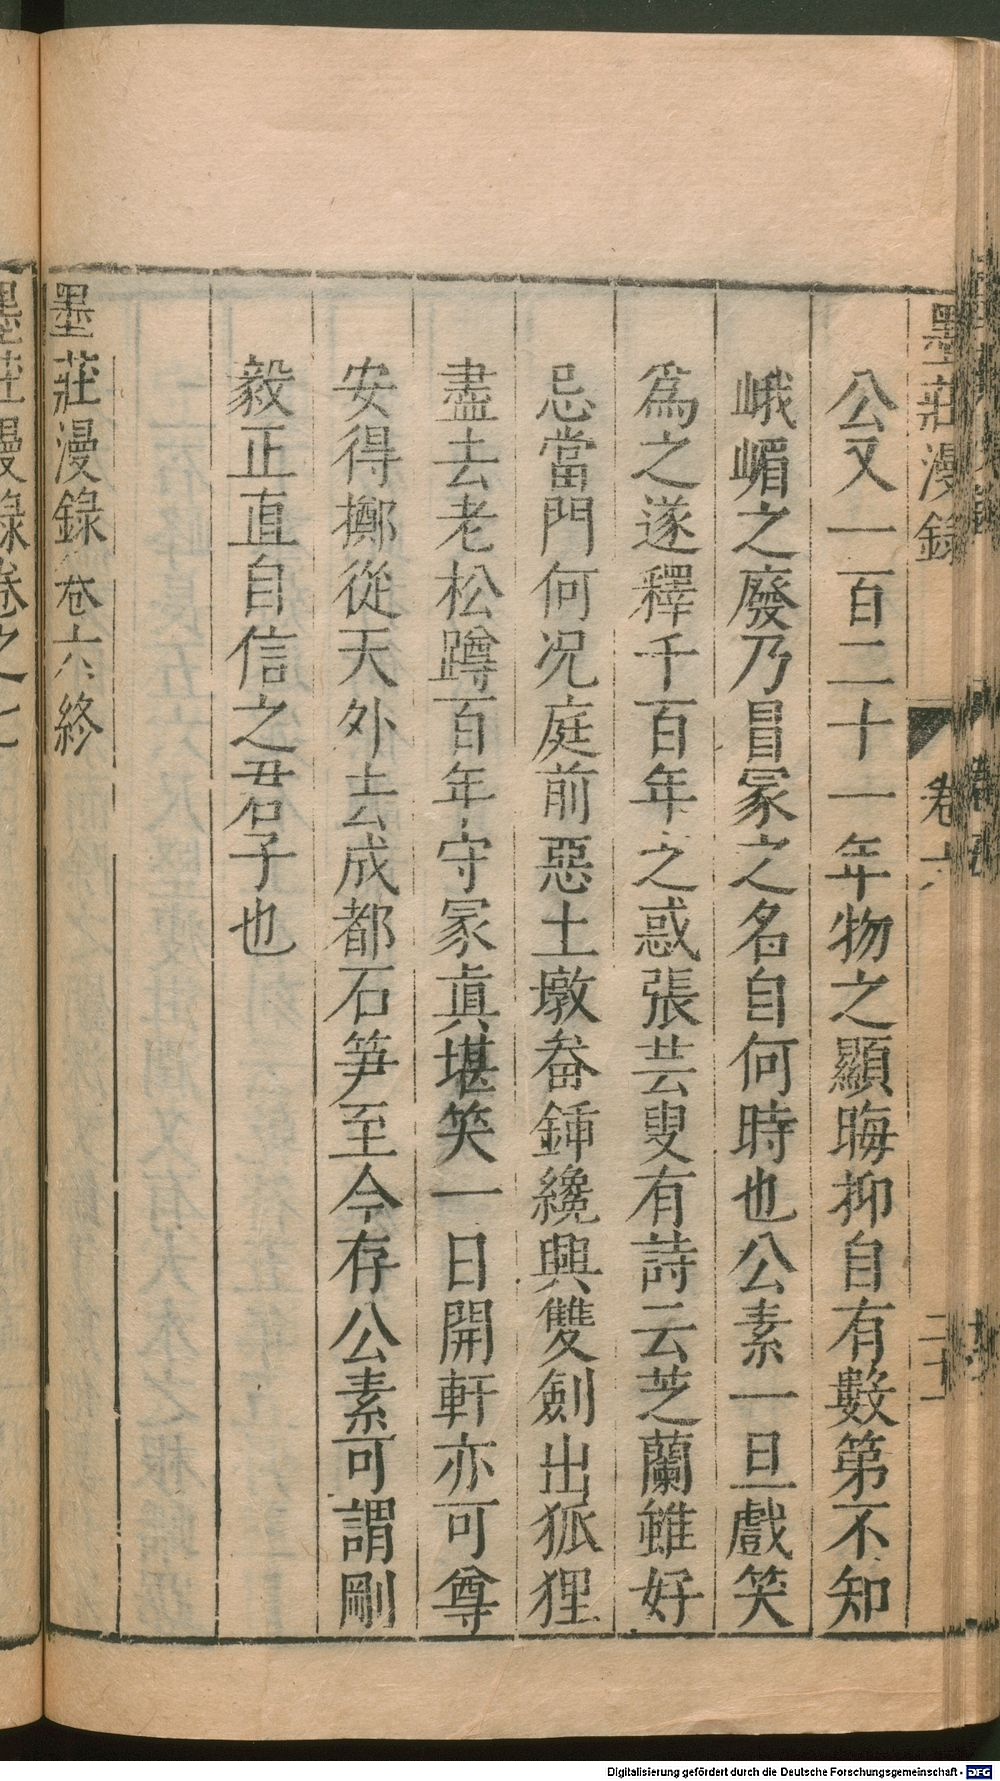 墨莊漫錄 卷六 二十一
公又一百二十一年物之顯晦抑自有數第不知
峨嵋之廢乃冒冢之名自何時也公素一旦戲笑
爲之遂釋千百年之惑張芸叟有詩云芝蘭雖好
忌當門何况庭前惡土墩畚鍤纔興雙劍出狐狸
盡去老松蹲百年守冢眞堪笑一日開軒亦可尊
安得擲從天外去成都石笋至今存公素可謂剛
毅正直自信之君子也
墨莊漫錄卷六終
墨莊漫錄卷之七
Digitalisierung gefördert durch die Deutsche Forschungsgemeinschaft - DFG